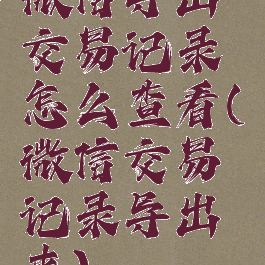 微信导出
交易记录
怎么查看(
微信交易
记录导出
来)